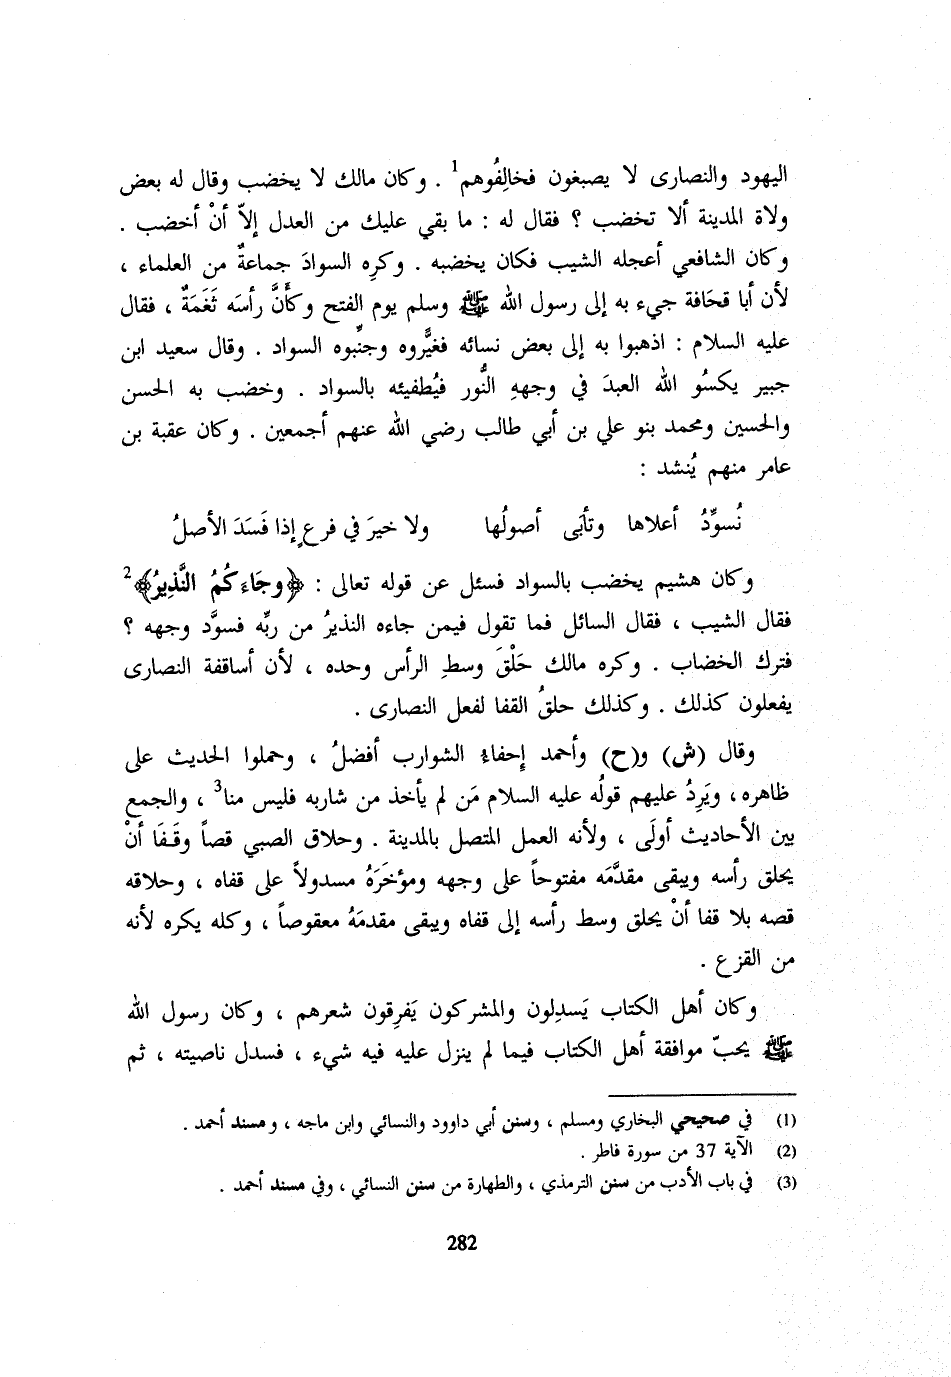 اليهود والنصارى لا يصبغون فخالِفُوهم1 . وكان مالك لا يخضب وقال له بعض
ولاة المدينة ألا تخضب ؟ فقال له : ما بقي عليك من العدل إلاّ أنْ أخضب .
وكان الشافعي أعجله الشيب فكان يخضبه . وكرِه السوادَ جماعةٌ من العلماء ،
لأن أبا قحَافة جيء به إلى رسول الله ﷺ وسلم يوم الفتح وكأَنَّ رأسَه ثَغَمَةٌ ، فقال
عليه السلام : اذهبوا به إلى بعض نسائه فغيَّروه وجنِّبوه السواد . وقال سعيد ابن
جبير يكسُو الله العبدَ في وجههِ النُّور فيُطفيئه بالسواد . وخضب به الحسن
والحسين ومحمد بنو علي بن أبي طالب رضي الله عنهم أجمعين . وكان عقبة بن
عامر منهم يُنشد :
نُسوِّدُ أعلاها وتأبَى أصولُها ولا خيرَ في فرعٍ إذا فَسَدَ الأصلُ
وكان هشيم يخضب بالسواد فسئل عن قوله تعالى : ﴿وجَاءَكُمُ النَّذِيرُ﴾2
فقال الشيب ، فقال السائل فما تقول فيمن جاءه النذيرُ من ربِّه فسوَّد وجهه ؟
فترك الخضاب . وكره مالك حَلْقَ وسطِ الرأس وحده ، لأن أساقفة النصارى
يفعلون كذلك . وكذلك حلقُ القفا لفعل النصارى .
وقال (ش) و(ح) وأحمد إِحفاءُ الشوارب أفضلُ ، وحملوا الحديث على
ظاهره، ويَرِدُ عليهم قولُه عليه السلام مَن لم يأخذ من شاربه فليس منا3 ، والجمع
بين الأحاديث أولَى ، ولأنه العمل المتصل بالمدينة . وحلاق الصبي قصاً وقَفَا أنْ
يحلق رأسه ويبقى مقدَّمَه مفتوحاً على وجهه ومؤخَرَهُ مسدولاً على قفاه ، وحلاقه
قصه بلا قفا أنْ يحلق وسط رأسه إلى قفاه ويبقى مقدمَهُ معقوصاً ، وكله يكره لأنه
من القزع .
وكان أهل الكتاب يَسدِلون والمشركون يَفرِقون شعرهم ، وكان رسول الله
ﷺ يحبّ موافقة أهل الكتاب فيما لم ينزل عليه فيه شيء ، فسدل ناصيته ، ثم
(1) في صحيحي البخاري ومسلم ، وسنن أبي داوود والنسائي وابن ماجه ، ومسند أحمد .
(2) الآية 37 من سورة فاطر .
(3) في باب الأدب من سنن الترمذي ، والطهارة من سنن النسائي ، وفي مسند أحمد .
282